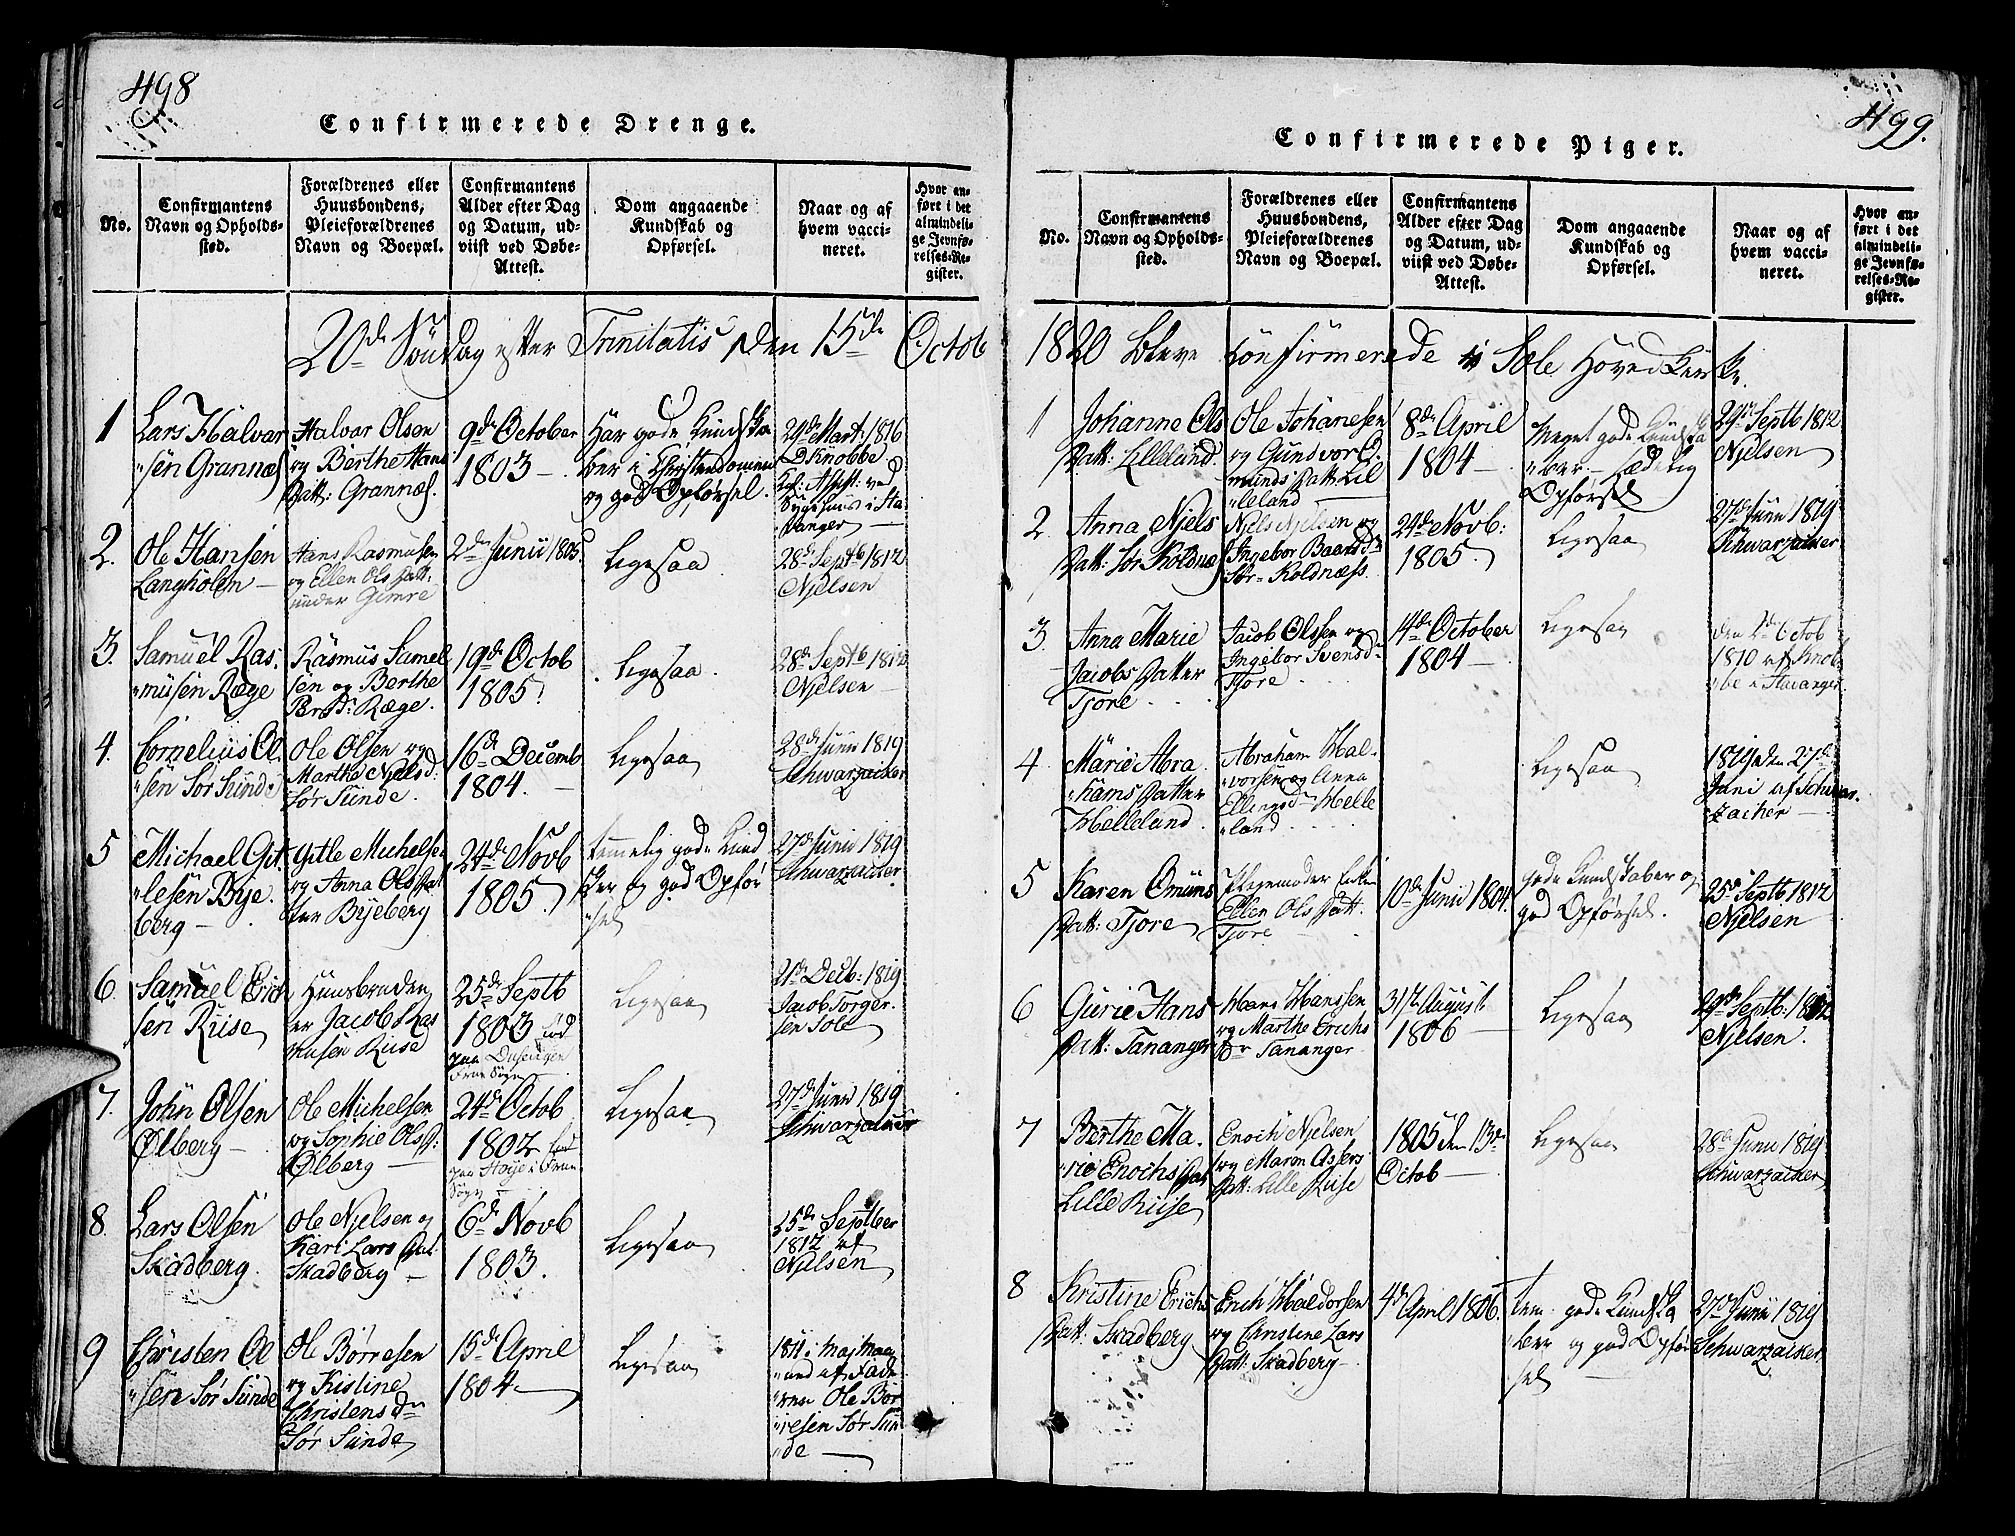 498
Confirmerede Drenge.
No.
Confirmantens
Navn og Opholds-
sted.
Forældrenes eller
Huusbondens,
Pleieforældrenes
Navn og Boepæl.
Confirmantens
Alder efter Dag
og Datum, ud-
viist ved Døbe-
Attest.
Dom angaaende
Kundskab og
Opførsel.
Naar og af
hvem vacci-
neret.
Hvor an-
ført i det
almindeli-
ge Jevnfø-
relses-Re-
gister.
20de Søndag efter Trinitatis den 15de Octob
1
Lars Halvar
"sen Grannæs
Halvar Olsen
og Berthe Hans
Datt: Grannæs.
9de October
1803 -
Har gode Kundska
ber i Christendommen
og god Opførsel.
29de Mart: 1816
D Knobbe
ved
Sygehuus i Sta
vanger
2.
Ole Hansen
Langholm -
Hans Rasmusen
og Ellen Ols Datt:
under Gimre
2de Junii 1805
Ligesaa
28de Septb 1812
Njelsen
3.
Samuel Ras.
"musen Ræge
Rasmus Samel
sen og Berthe
Ræge.
19de Octob
1805.
Ligesaa.
28de Septb 1812
Njelsen -
4.
Cornelius Ol.
"sen Sør Sunde
Ole Olsen og
Marthe Njelsd:
Sør Sunde.
16de Decemb
1804. -
Ligesaa
28de Junii 1819
Schwarzacker
5
Michael Git.
"lesen Bye.
berg -
Gitle Michelsen
og Anna Ols Dat
ter Byeberg
24de Novb
1805.
temmelig gode Kund
sker og god Opfør
"sel
27de Junii 1819
Schwarzacker
6.
Samuel Erich
sen Riise
Huusbonden
er Jacob Ras
musen Riise
25de Septb
1803 fød
paa
Sogn
Ligesaa
21de Decb: 1819
Jacob Torger.
sen Sole
7.
John Olsen
Ølberg -
Ole Michelsen
og Sophie Ols D:
Ølberg -
24de Octob
1802 fød
paa
Sogn
Ligesaa
27de Junii 1819
Schwarzacker
8.
Lars Olsen
Skadberg.
Ole Njelsen og
Kari Lars Dat
Skadberg -
6de Novb
1803.
Ligesaa
25de Septber
1812 af
Njelsen
9
Christen Ol
"sen Sør Sunde
Ole Børresen
og Kistine
Christens dr
Sør Sunde
15de April
1804 -
Ligesaa
1811 i Maj Maa
"ned af Fade
"ren Ole Bør
"resen Sør Sun
"de -
499.
Confirmerede Piger.
No.
Confirmantens
Navn og Opholds-
sted.
Forældrenes eller
Huusbondens,
Pleieforældrenes
Navn og Boepæl.
Confirmantens
Alder efter Dag
og Datum, ud-
viist ved Døbe-
Attest.
Dom angaaende
Kundskab og
Opførsel.
Naar og af
hvem vacci-
neret.
Hvor an-
ført i det
almindeli-
ge Jevnfø-
relses-Re-
gister.
1820 bleve confirmerede i Sole Hoved Kirke.
1
Johanne Ols
Datt: Lilleland.
Ole Johanesen
og Gundvor O.
munds Datt Lil
"leland
8de April
1804 -
Meget gode Kundska
"ber - sædelig
Opførsel
29de Septb 1812
Njelsen
2.
Anna Njels
Datt: Sør Koldnæs
Njels Njelsen og
Ingebor Baards Dr
Sør- Koldnæss.
24de Novb:
1805.
Ligesaa
27de Junii 1819
Schwarzacker
3.
Anna Marie
Jacobs Datter
Tjore . .
Jacob Olssen og
Ingebor Svensdr
Tjore . .
14de October
1804 -
Ligesaa
den 2de Octob
1810 af Knob
"be i Stavanger
4
Marie Abra
"hams Datter
Helleland.
Abraham Hal-
"vorsen og Anna
Ellingsdr Helle
"land. . .
Ligesaa
1819 den 27de
Juni af Schwar.
zacher -
5
Karen Omuns
Datt: Tjore
Plejemoder Enken
Ellen Ols Datt.
Tjore -
10de Junii 1804.
gode Kundskaber og
god Opførsel.
25de Septb 1812
Njelsen
6
Gurie Hans
Datt: Tananger
Hans Hanssen
og Marthe Erichs
Dr Tananger
31te August
1806 -
Ligesaa
29de Septb: 1812
Njelsen.
7
Berthe Ma.
"rie Enochs Dat
Lille Riise
Enoch Njelsen
og Maren Assers
Datt: Lille Riise
1805 den 13de
Octob -
Ligesaa
28de Junii 1819
Schwarzacker
8
Kristine Erichs
Datt: Skadberg
Erich Haldorsen
og Christine Lars
Datt: Skadberg -
4de April 1806.
tem: gode Kundska
"ber og god Opfør
sel -
27de Junii 1819
Schwarzacker.